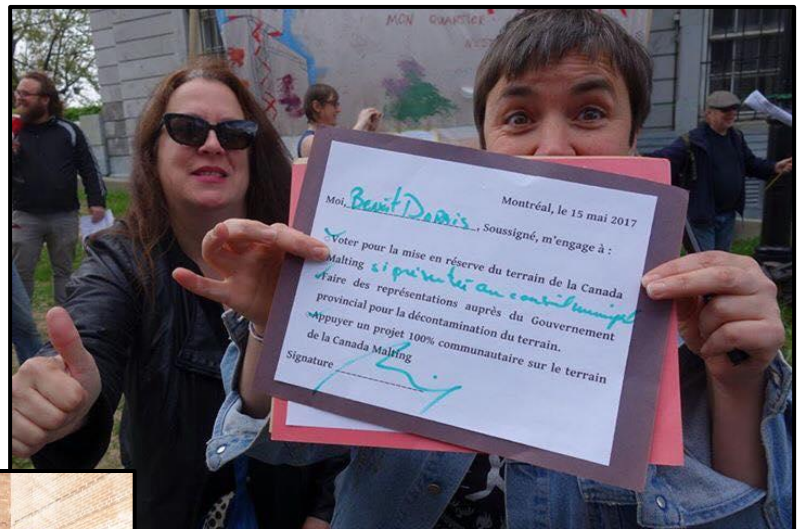 MON QUARTIER
N'EST
Montréal, le 15 mai 2017
Moi, Benoit Dorais, Soussigné, m'engage à :
Voter pour la mise en réserve du terrain de la Canada
Malting si présentée au conseil municipal
Faire des représentations auprès du Gouvernement
provincial pour la décontamination du terrain.
Appuyer un projet 100% communautaire sur le terrain
de la Canada Malting
Signature